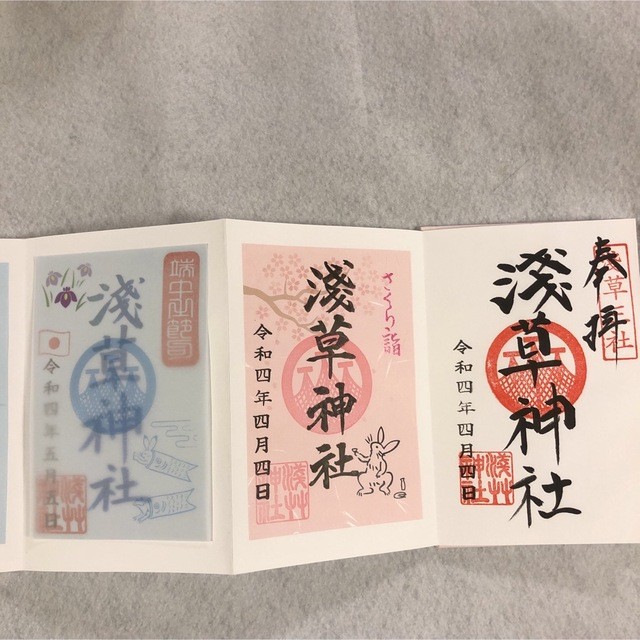 奉拝
淺草神社
令和四年四月四日
淺草神社
さくら詣
淺草神社
令和四年四月四日
淺草神社
端午之節句
淺草神社
令和四年五月五日
淺草神社